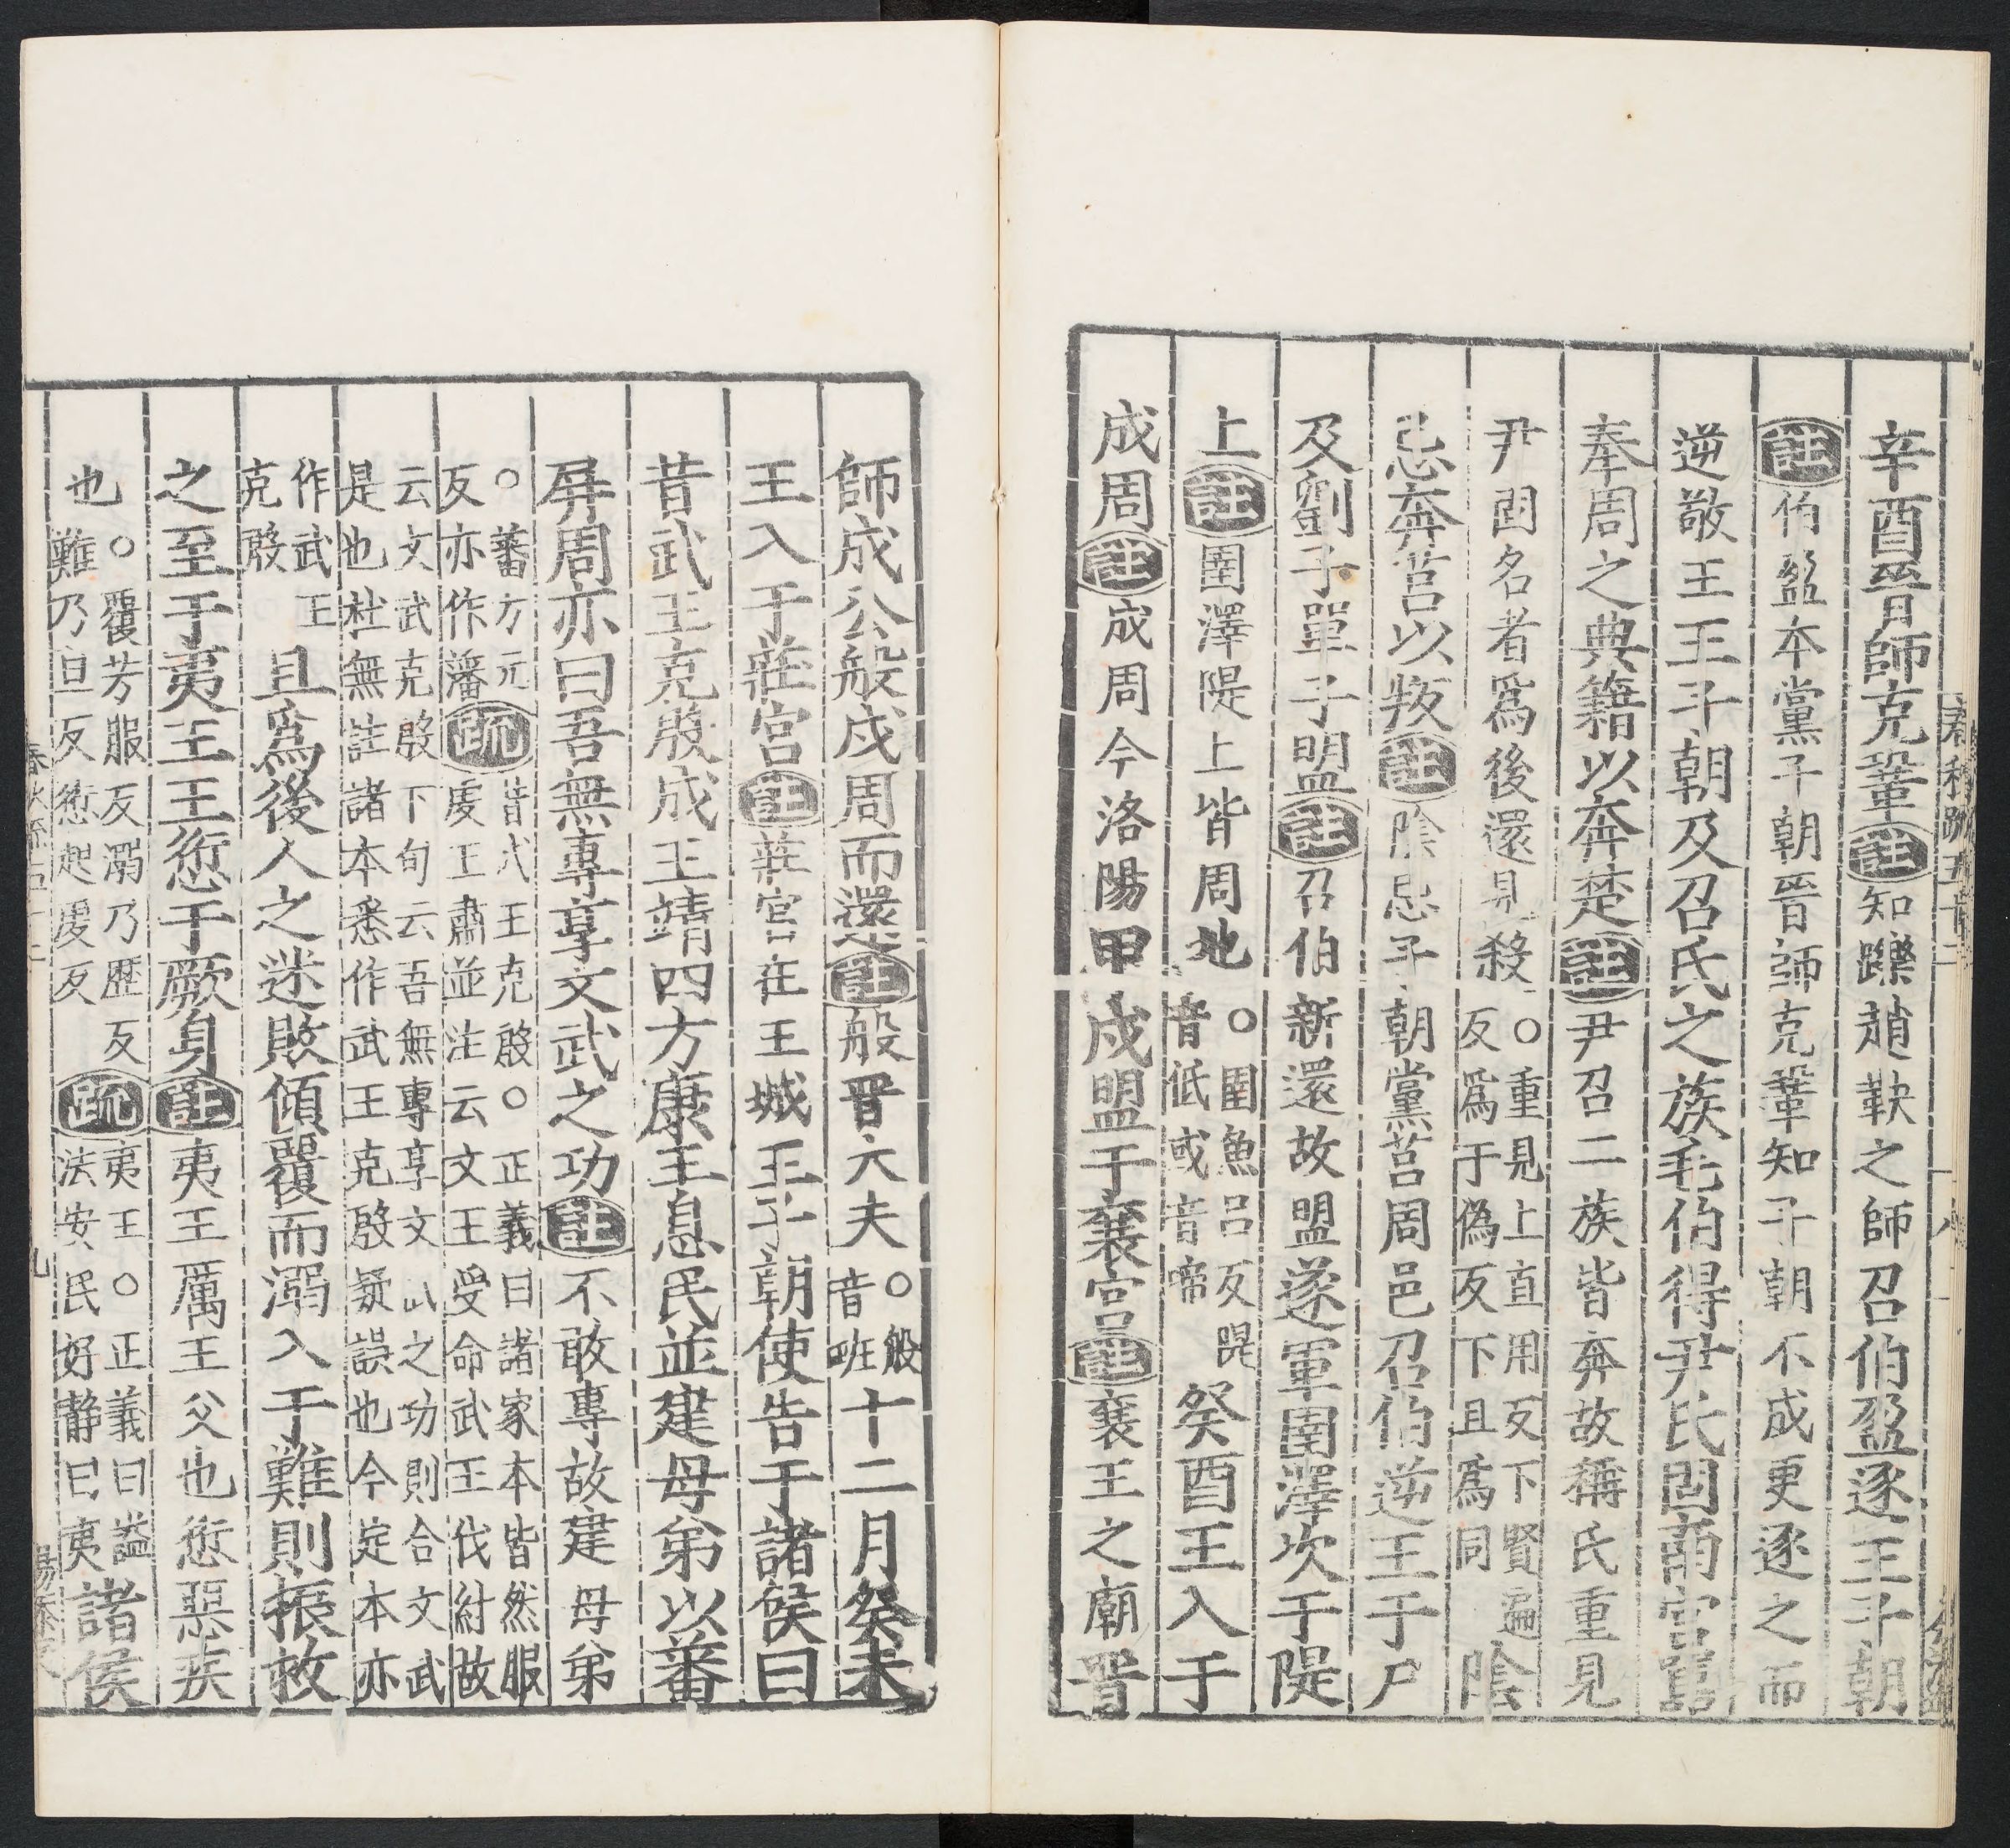 辛酉晉師克鞏註知躒趙鞅之師召伯盈逐王子朝
註伯盈本黨子朝晉師克鞏知子朝不成更逐之而
逆敬王王子朝及召氏之族毛伯得尹氏固南宮嚚
奉周之典籍以奔楚註尹召二族皆奔故稱氏重見
尹固名者爲後還見殺○重見上直用反下賢遍
反爲于僞反下且爲同
陰
忌奔莒以叛註陰忌子朝黨莒周邑召伯逆王于尸
及劉子單子盟註召伯新還故盟遂軍圉澤次于隄
上註圉澤隄上皆周地○圉魚呂反隄
音低或音啼
癸酉王入于
成周註成周今洛陽甲戌盟于襄宮註襄王之廟晉
師成公般戍周而還註般晉大夫○般
音班
十二月癸未
王入于莊宮註莊宮在王城王子朝使告于諸侯曰
昔武王克殷成王靖四方康王息民並建母弟以蕃
屏周亦曰吾無專享文武之功註不敢專故建母弟
○蕃方元
反亦作藩
疏昔武王克殷○正義曰諸家本皆然服
虔王肅並注云文王受命武王伐紂故
云文武克殷下句云吾無專享文武之功則合文武
是也杜無註諸本悉作武王克殷疑誤也今定本亦
作武王
克殷
且爲後人之迷敗傾覆而溺入于難則振救
之至于夷王王愆于厥身註夷王厲王父也愆惡疾
也○覆芳服反溺乃歷反
難乃旦反愆起虔反
疏夷王○正義曰謚
法安民好靜曰夷
諸侯